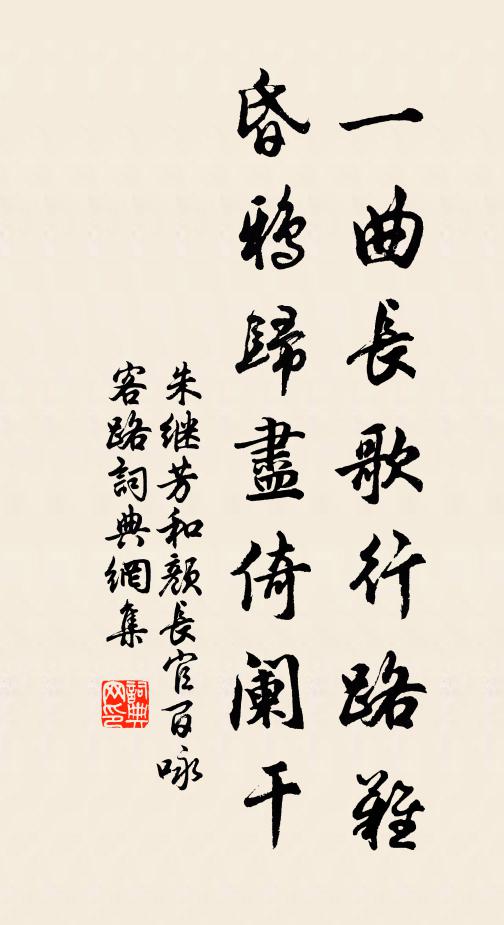 一曲長歌行路難
昏鴉歸盡倚闌干
朱继芳和顏長官百咏
客路詞典網集
詞典网印